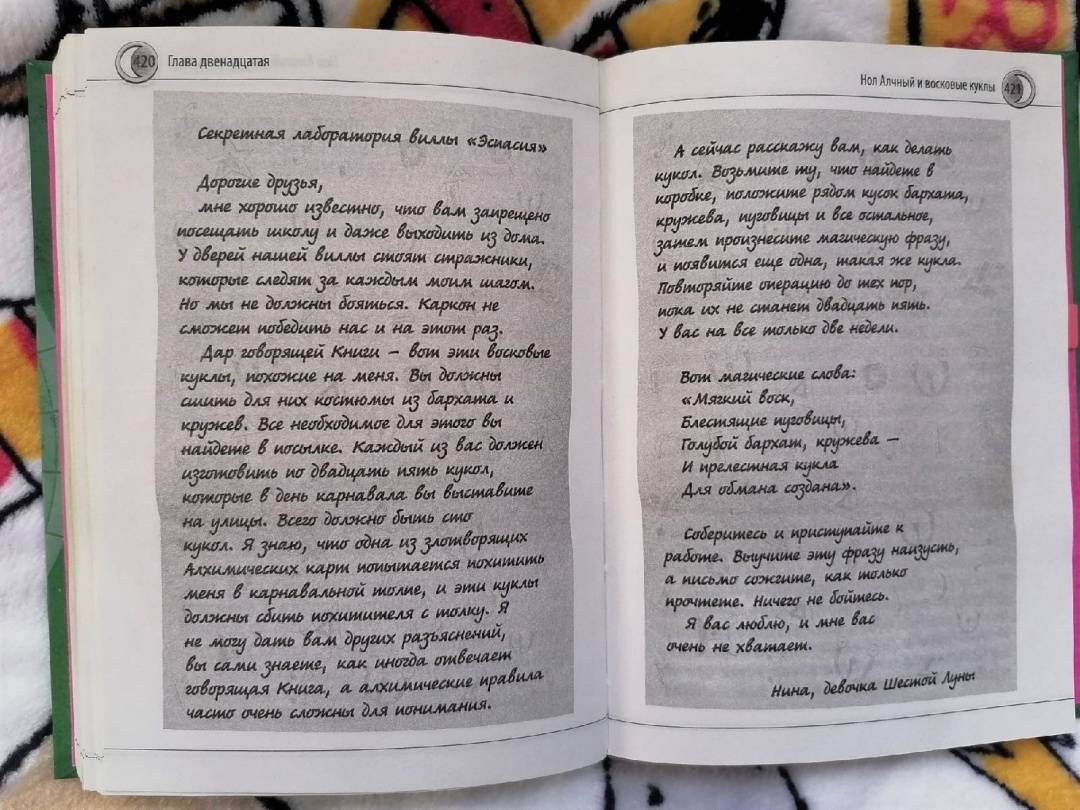 420
Глава двенадцатая
Секретная лаборатория виллы «Эспасия»
Дорогие друзья,
мне хорошо известно, что вам запрещено
посещать школу и даже выходить из дома.
У дверей нашей виллы стоят стражники,
которые следят за каждым моим шагом.
Но мы не должны бояться. Каркон не
сможет победить нас и на этот раз.
Дар говорящей Книги – вот эти восковые
куклы, похожие на меня. Вы должны
сшить для них костюмы из бархата и
кружев. Все необходимое для этого вы
найдете в посылке. Каждый из вас должен
изготовить по двадцать пять кукол,
которые в день карнавала вы выставите
на улицы. Всего должно быть сто
кукол. Я знаю, что одна из злотворящих
Алхимических карт попытается похитить
меня в карнавальной толпе, и эти куклы
должны сбить похитителя с толку. Я
не могу дать вам других разъяснений,
вы сами знаете, как иногда отвечает
говорящая Книга, а алхимические правила
часто очень сложны для понимания.
Нол Алчный и восковые куклы
421
А сейчас расскажу вам, как делать
кукол. Возьмите ту, что найдете в
коробке, положите рядом кусок бархата,
кружева, пуговицы и все остальное,
затем произнесите магическую фразу,
и появится еще одна, такая же кукла.
Повторяйте операцию до тех пор,
пока их не станет двадцать пять.
У вас на все только две недели.
Вот магические слова:
«Мягкий воск,
Блестящие пуговицы,
Голубой бархат, кружева –
И прелестная кукла
Для обмана создана».
Соберитесь и приступайте к
работе. Выучите эту фразу наизусть,
а письмо сожгите, как только
прочтете. Ничего не бойтесь.
Я вас люблю, и мне вас
очень не хватает.
Нина, девочка Шестой Луны